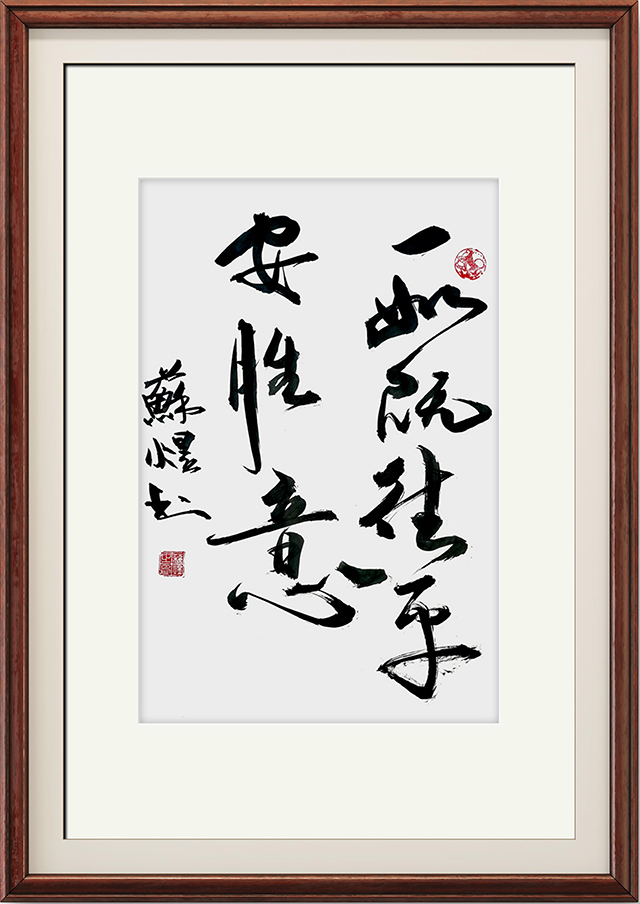 一如既往平
安胜意
蘇煜书